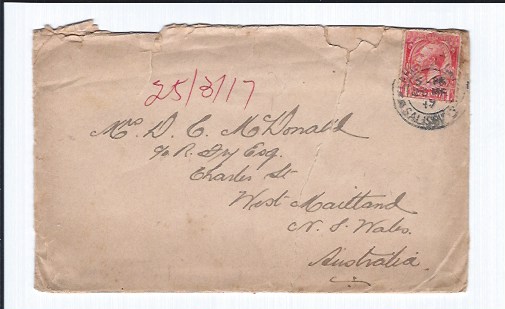 25/3/17
Mrs D. C. McDonald
c/o R. Fry Esq.
Charles St
West Maitland
N. S. Wales.
Australia.
SALISB
17